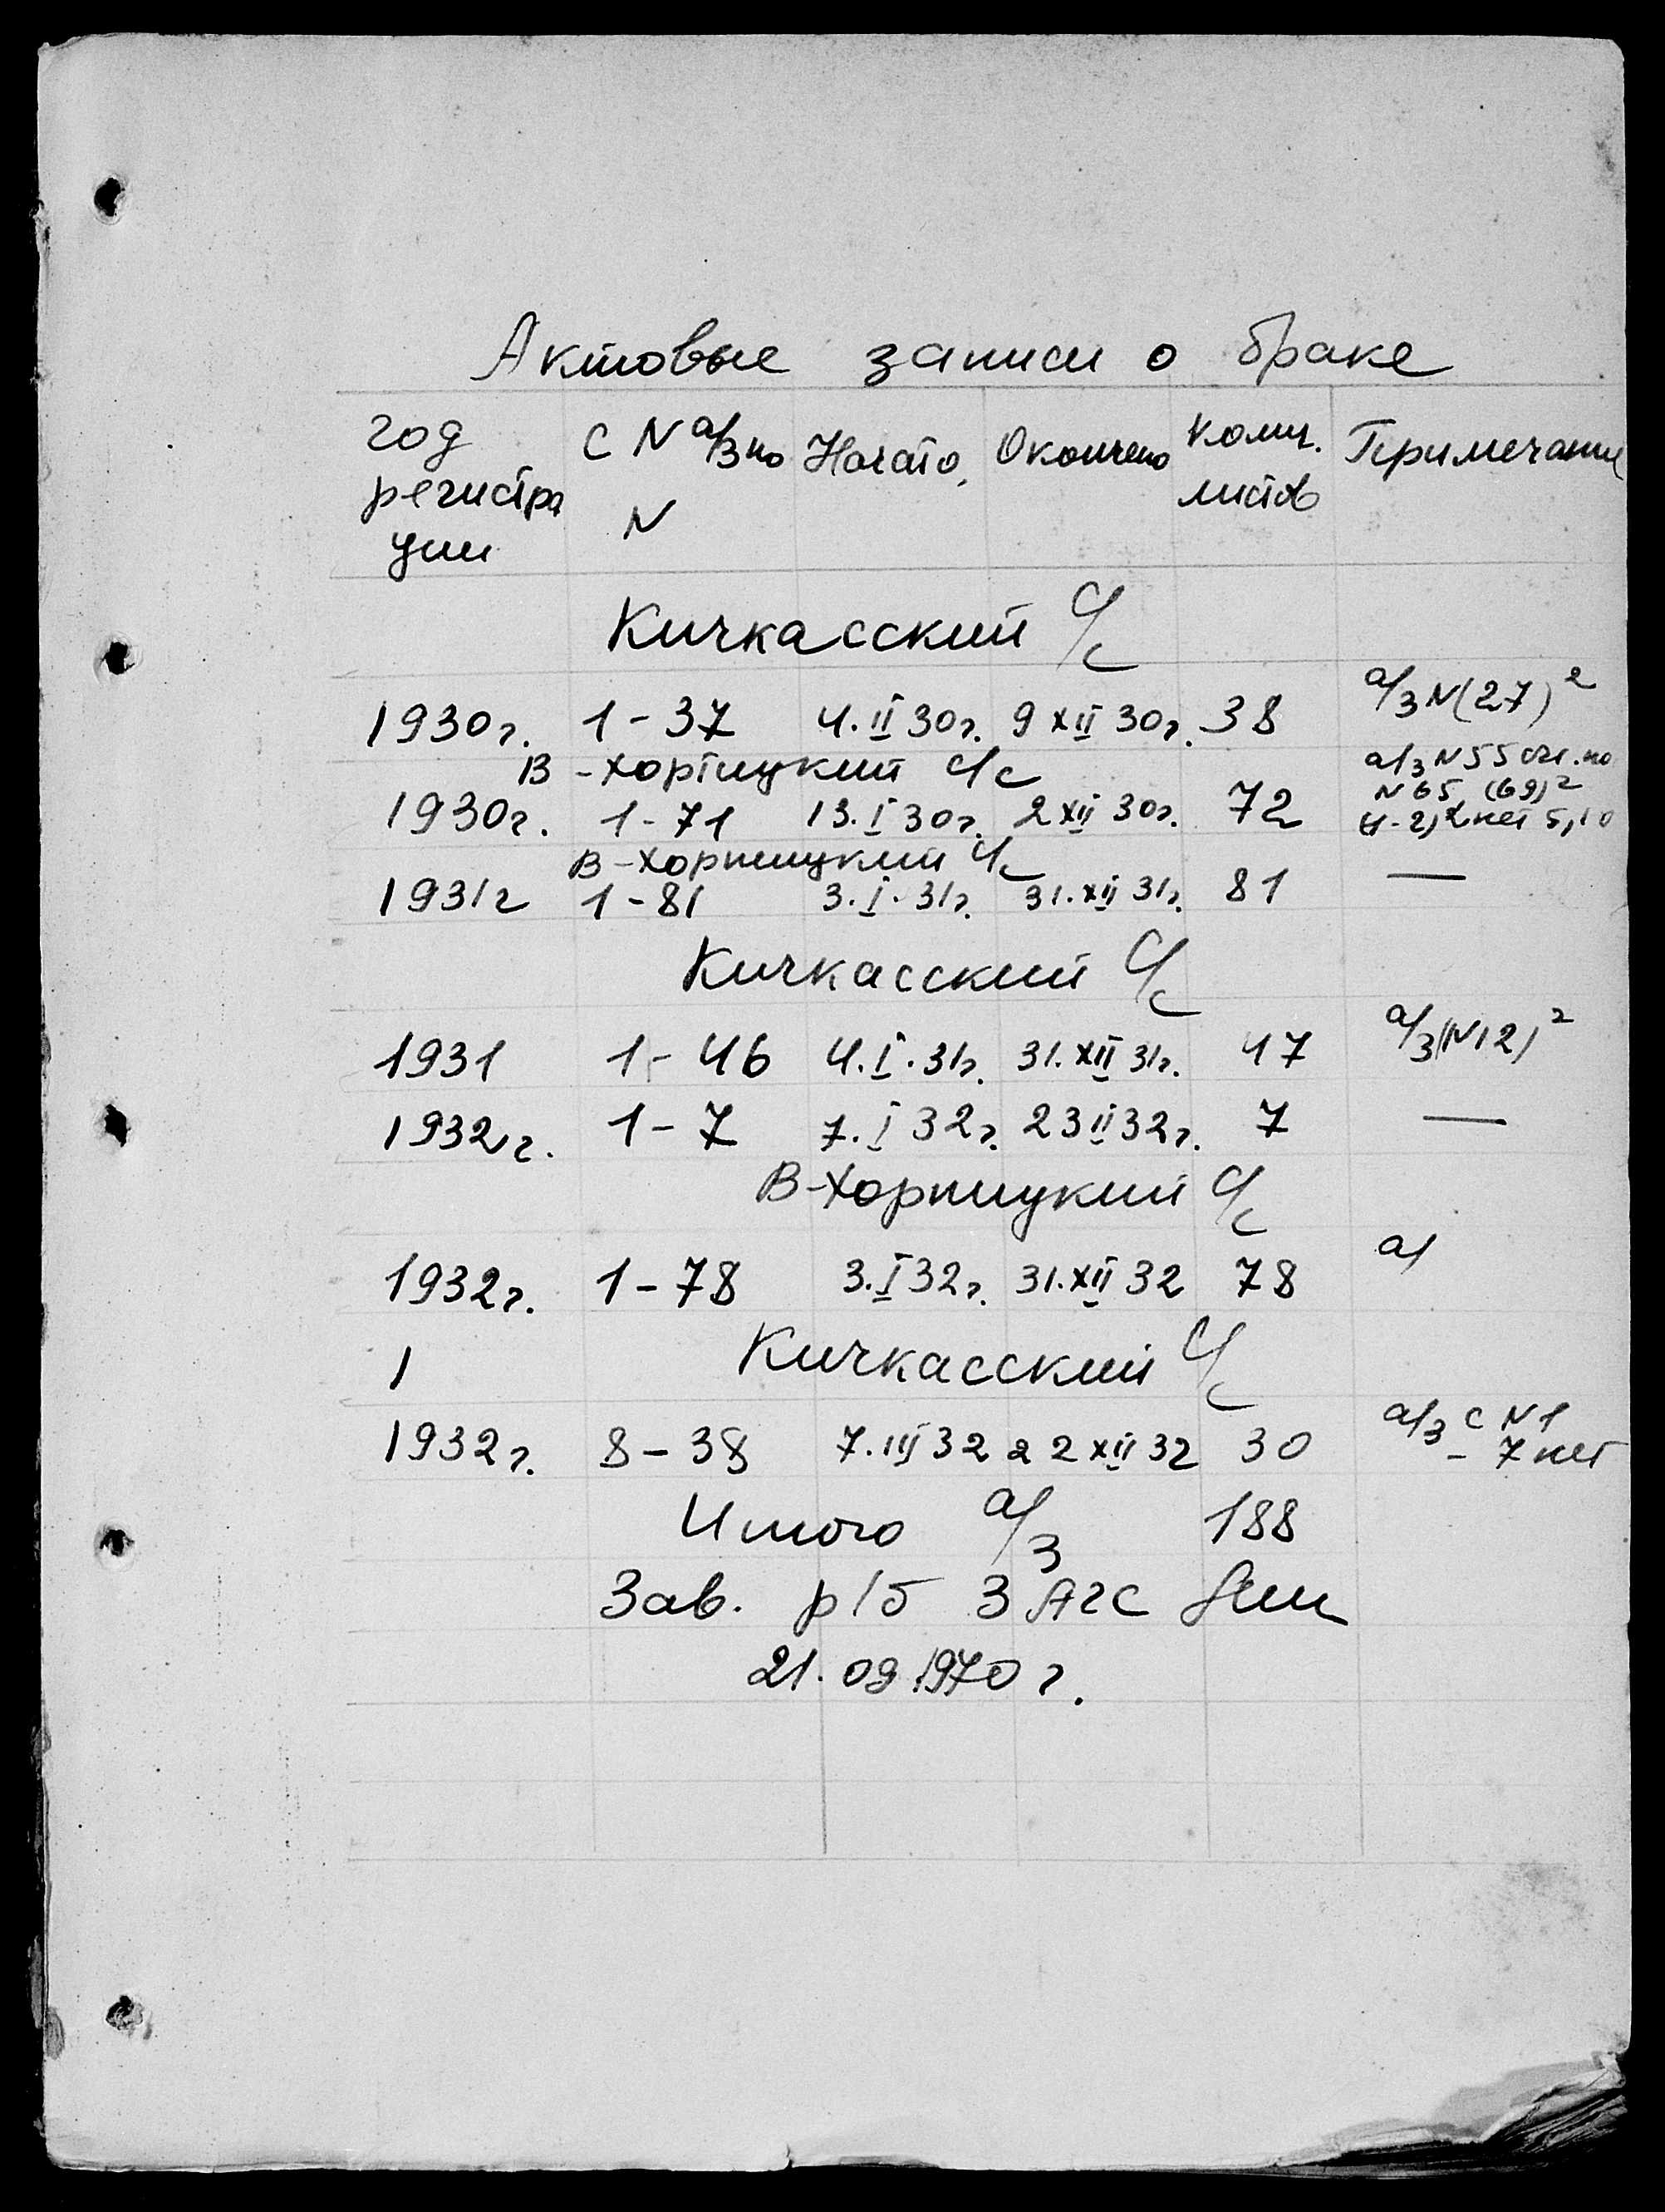 Актовые записи о браке
год регистра ции
С N а/з по N
Начато.
Окончено
Колич. листов
Примечание
Кичкасский С/с
1930г. 1-37 4.II 30г. 9 XII 30г. 38 а/з N(27)²
В-Хортицкий с/с
1930г. 1-71 13.I 30г. 2 XII 30г. 72 а/з N55 по N65 (69)² нет 5,10
В-Хортицкий с/с
1931г 1-81 3.I.31г. 31.XII 31г. 81 —
Кичкасский С/с
1931 1-46 4.I.31г. 31.XII 31г. 47 а/з(N12)²
1932г. 1-7 7.I 32г. 23 II 32г. 7 —
В-Хортицкий С/с
1932г. 1-78 3.I 32г. 31.XII 32 78 а/
1 Кичкасский С/с
1932г. 8-38 7.III 32 22 XII 32 30 а/з с N1 - 7 нет
Итого а/з 188
Зав. р/б ЗАГС
21.09.1970г.